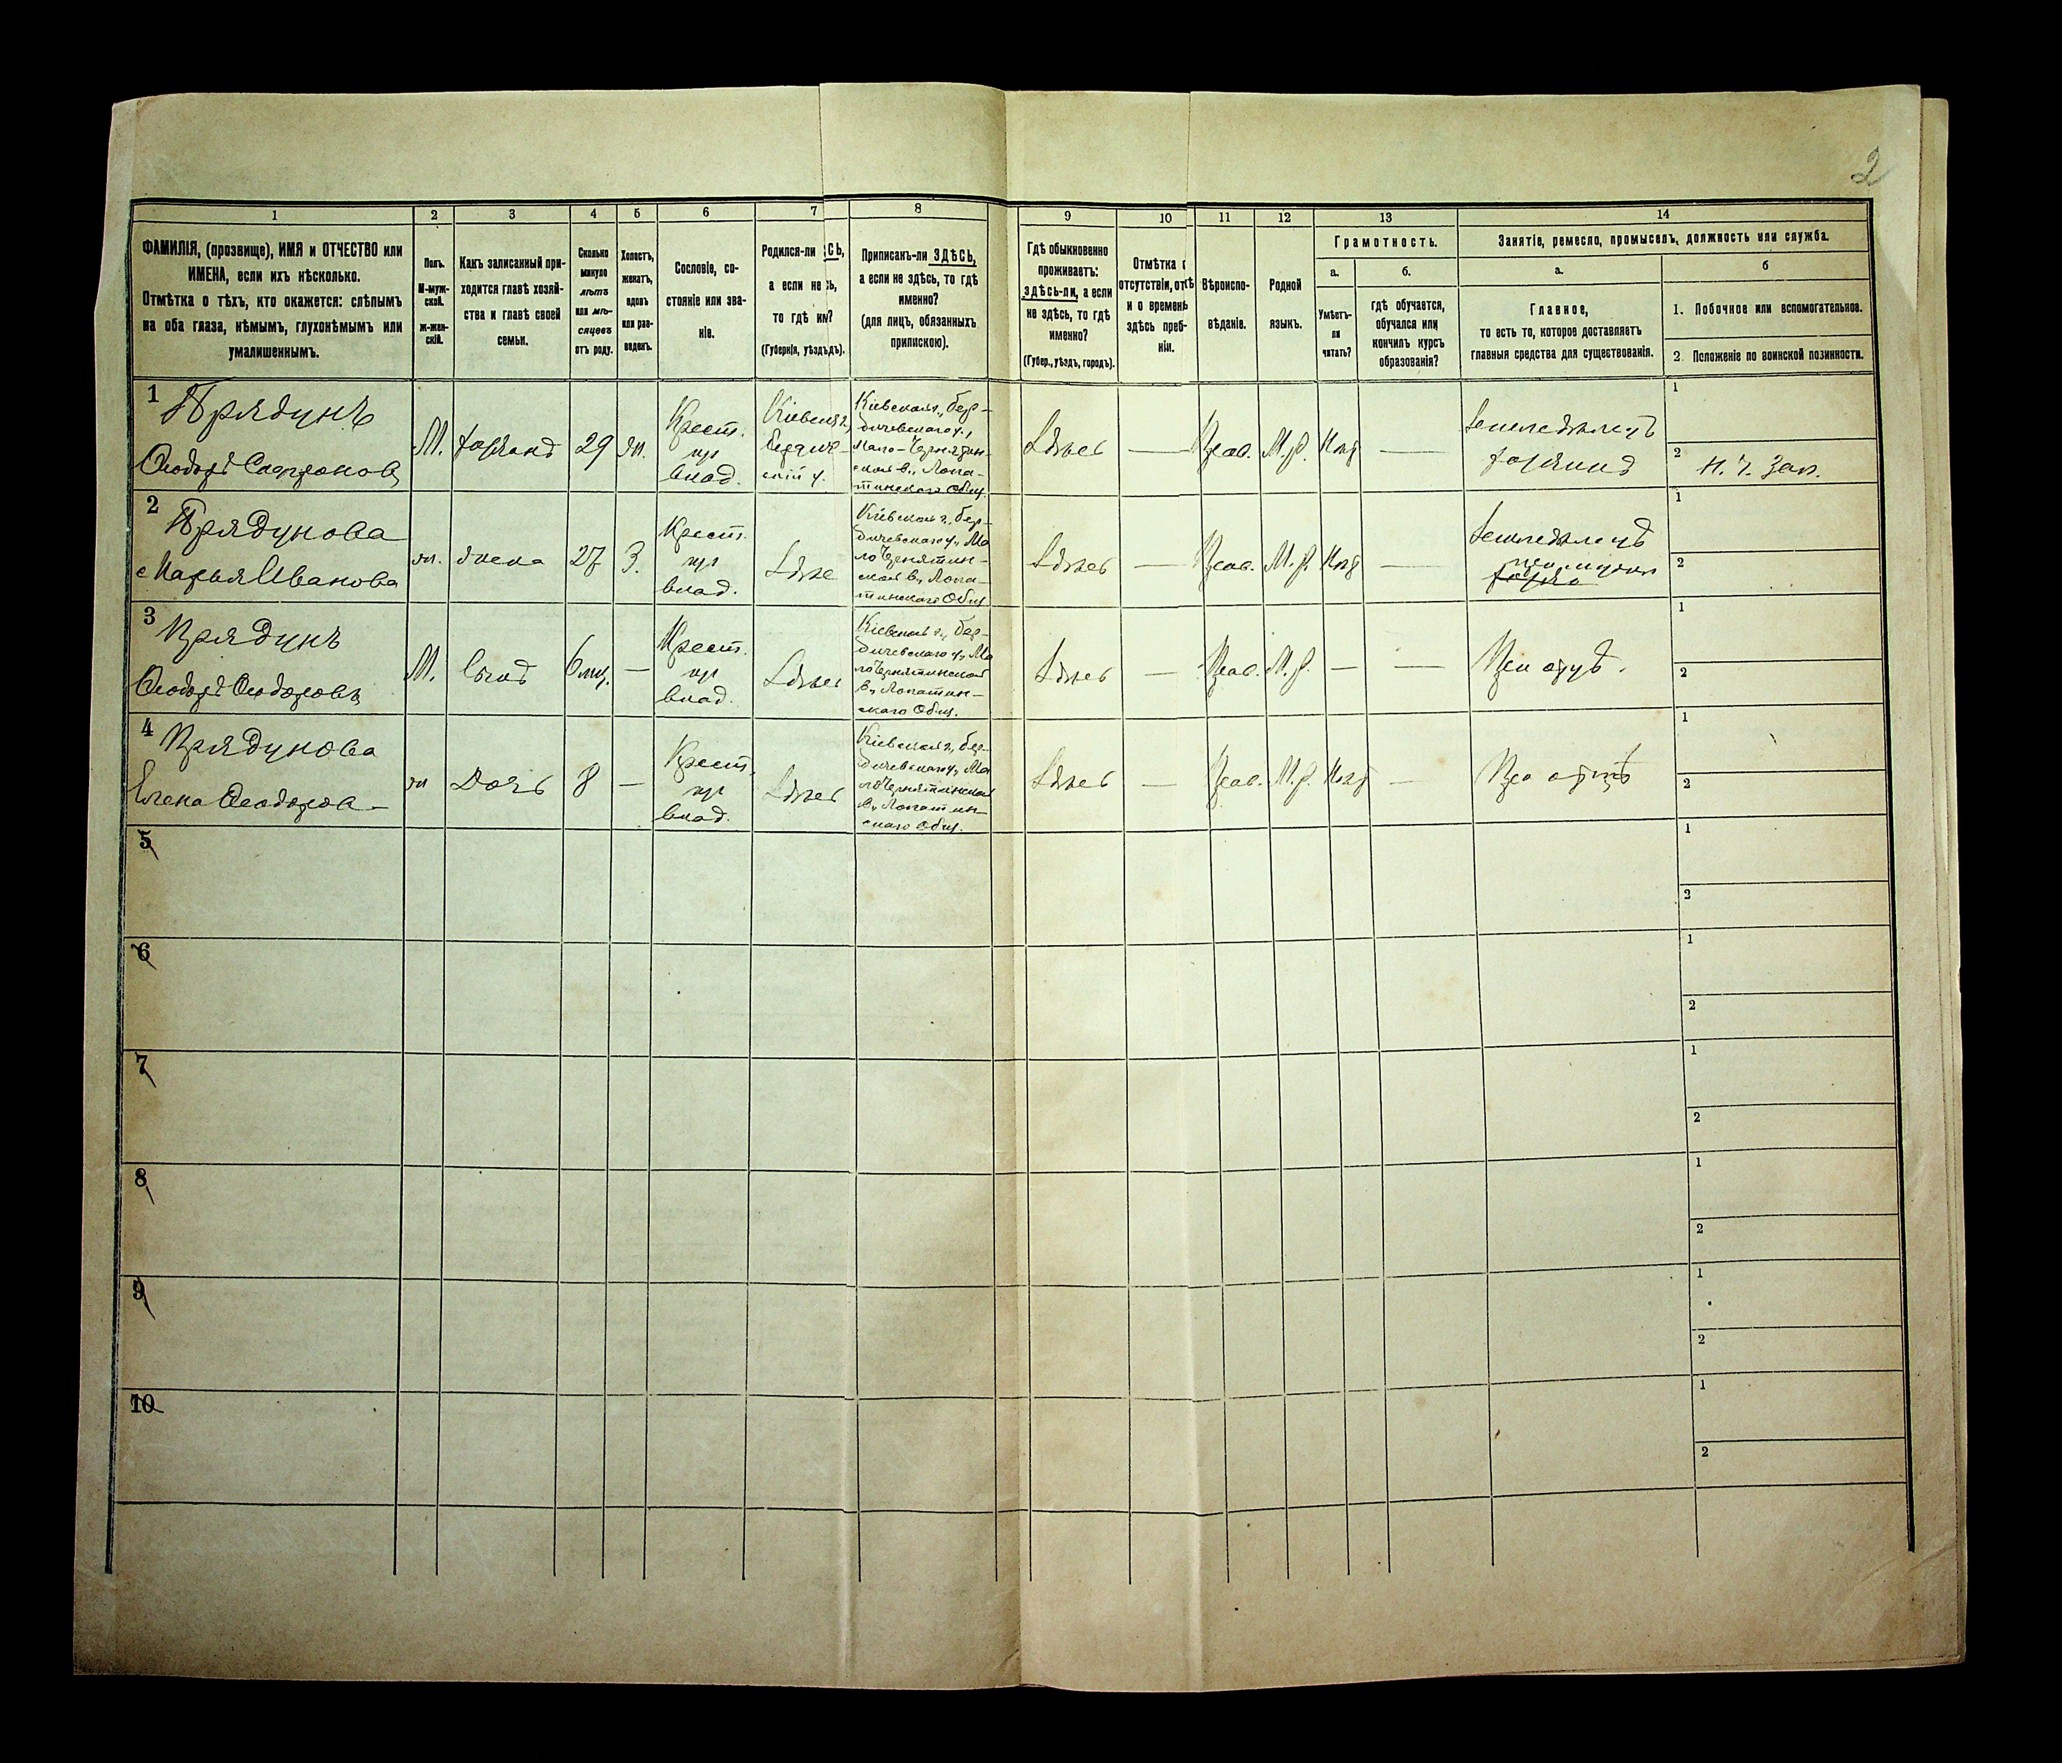 2
1 2 3 4 5 6 7 8 9 10 11 12 13 14
ФАМИЛІЯ, (прозвище), ИМЯ и ОТЧЕСТВО или
ИМЕНА, если ихъ нѣсколько.
Отмѣтка о тѣхъ, кто окажется: слѣпымъ
на оба глаза, нѣмымъ, глухонѣмымъ или
умалишеннымъ.
Полъ.
М-муж-
ской.
ж-жен-
скій.
Какъ записанный при-
ходится главѣ хозяй-
ства и главѣ своей
семьи.
Сколько
минуло
лѣтъ
или мѣ-
сяцевъ
отъ роду.
Холостъ,
женатъ,
вдовъ
или раз-
веденъ.
Сословіе, со-
стояніе или зва-
ніе.
Родился-ли СЬ,
а если не ь,
то гдѣ им?
(Губернія, уѣздъдъ).
Приписанъ-ли ЗДѢСЬ,
а если не здѣсь, то гдѣ
именно?
(для лицъ, обязанныхъ
припискою).
Гдѣ обыкновенно
проживаетъ:
здѣсь-ли, а если
не здѣсь, то гдѣ
именно?
(Губер., уѣздъ, городъ).
Отмѣтка
отсутствіи,
и о временн
здѣсь преб-
ніи.
Вѣроиспо-
вѣданіе.
Родной
языкъ.
Грамотность.
а.
Умѣетъ-
ли
читать?
б.
гдѣ обучается,
обучался или
кончилъ курсъ
образованія?
Занятіе, ремесло, промыселъ, должность или служба.
а.
Главное,
то есть то, которое доставляетъ
главныя средства для существованія.
б
1. Побочное или вспомогательное.
2 Положеніе по воинской повинности.
1 Прядунъ
Ѳеодоръ Софроновъ
М.
хозяинъ
29
жн.
Крест.
вл
влад.
Кіевской г.
Бердич-
скій у.
Кіевская г., Бер-
дичевскаго у.,
Мало-Чернятин-
ская в., Лопа-
тинскаго Общ.
Здѣсь
—
Прав.
М.р.
—
Земледѣлецъ
хозяинъ
1
2 Н. ч. Зап.
2 Прядунова
Марья Иванова
ж.
жена
27
З.
Крест.
вл
влад.
Здѣсь
Кіевская г., Бер-
дичевскаго у., Ма
ло Чернятин-
ская в., Лопа-
тинскаго Общ.
Здѣсь
—
Прав.
М.р.
—
Земледѣлецъ
1
2
3 Прядунъ
Ѳеодоръ Ѳеодоровъ
М.
Сынъ
6 мц.
—
Крест.
вл
влад.
Здѣсь
Кіевская г., Бер-
дичевскаго у., Ма
ло Чернятинская
в., Лопатин-
скаго Общ.
Здѣсь
—
Прав.
М.р.
—
—
При отцѣ.
1
2
4 Прядунова
Елена Ѳеодоров-
ж
Дочь
8
—
Крест.
вл
влад.
Здѣсь
Кіевская г., Бер-
дичевскаго у., Ма
ло Чернятинская
в., Лопатин-
скаго Общ.
Здѣсь
—
Прав.
М.р.
—
При отцѣ
1
2
5
1
2
6
1
2
7
1
2
8
1
2
9
1
2
10
1
2